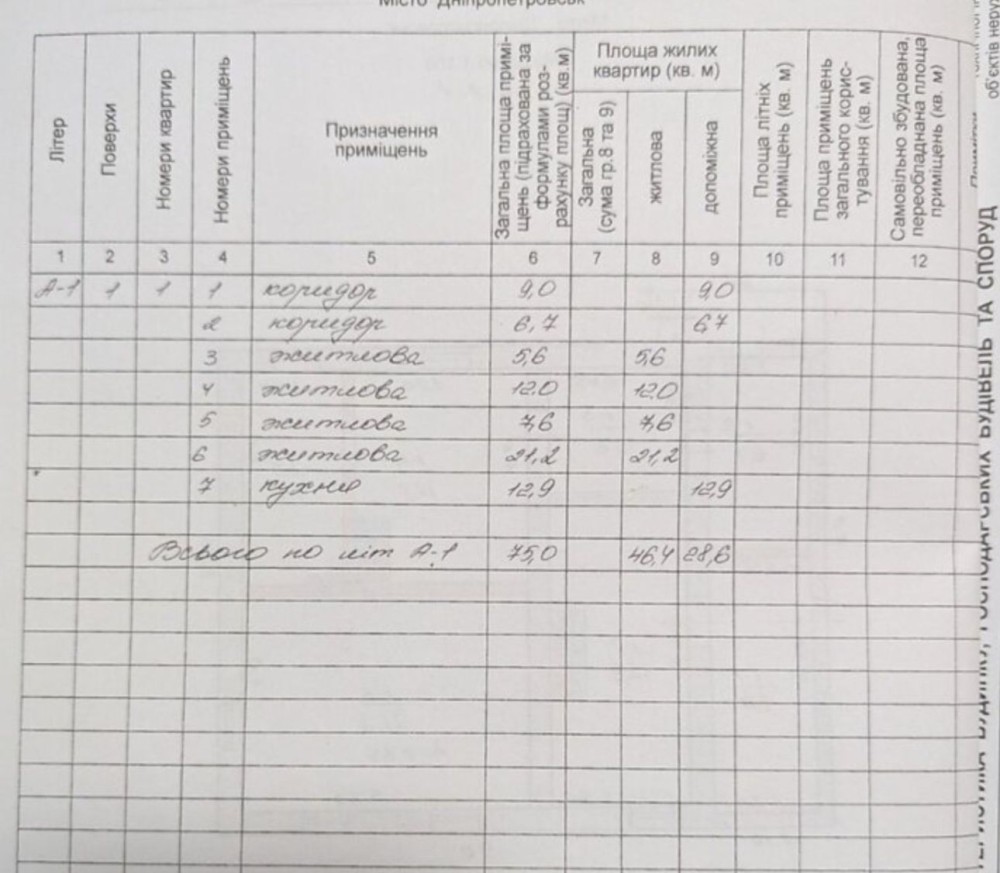 Місто Дніпропетровськ
Літер
Поверхи
Номери квартир
Номери приміщень
Призначення
приміщень
Загальна площа примі-
щень (підрахована за
формулами роз-
рахунку площ) (кв.м)
Площа жилих
квартир (кв. м)
Загальна
(сума гр.8 та 9)
житлова
допоміжна
Площа літніх
приміщень (кв. м)
Площа приміщень
загального корис-
тування (кв. м)
Самовільно збудована,
переобладнана площа
приміщень (кв. м)
1 2 3 4 5 6 7 8 9 10 11 12
А-1 1 1 1 коридор 9,0 9,0
2 коридор 6,7 6,7
3 житлова 5,6 5,6
4 житлова 12,0 12,0
5 житлова 7,6 7,6
6 житлова 21,2 21,2
7 кухня 12,9 12,9
Всього по літ А-1 75,0 46,4 28,6
об'єктів
БУДІВЕЛЬ ТА СПОРУД